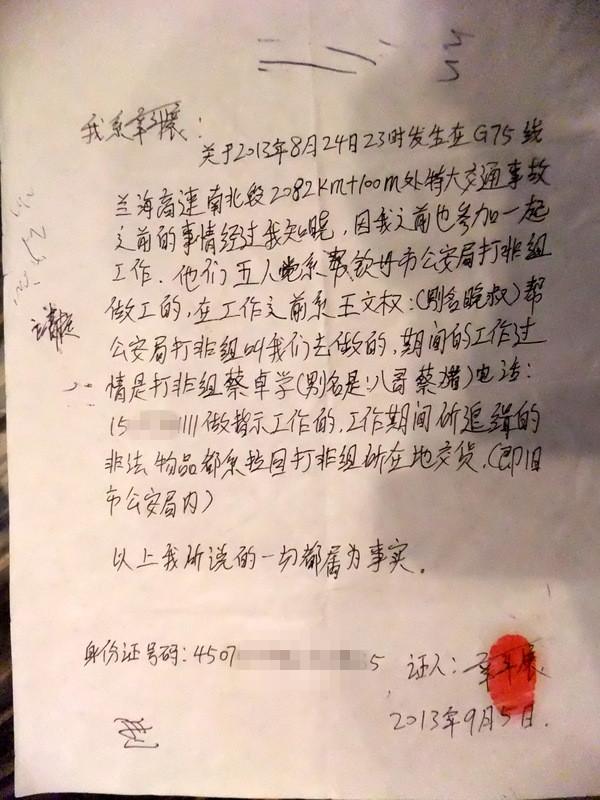 我系章年展：
关于2013年8月24日23时发生在G75线
兰海高速南北段2082Km+100m处特大交通事故
之前的事情经过我知晓，因我之前也参加一起
工作．他们五人系帮钦州市公安局打非组
做工的，在工作之前系王文权：（别名晚叔）帮
公安局打非组叫我们去做的，期间的工作过
情是打非组蔡卓学（别名是：八哥 蔡猪）电话：
15 1111做指示工作的，工作期间所追缉的
非法物品都系拉回打非组所在地交货，（即旧
市公安局内）
以上我所说的一切都属为事实。
身份证号码：4507 5 证人：章年展
2013年9月5日．